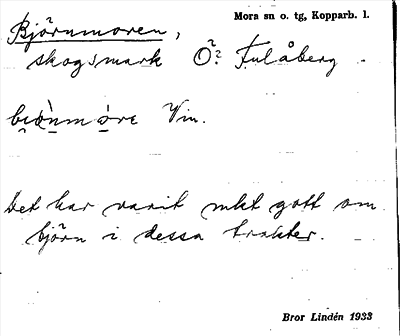 Björnmoren,
Mora sn o. tg, Kopparb. l.
skogsmark Ö? Fulåberg.
Vin.
Det har varit mkt gott om
björn i dessa trakter.
Bror Lindén 1933